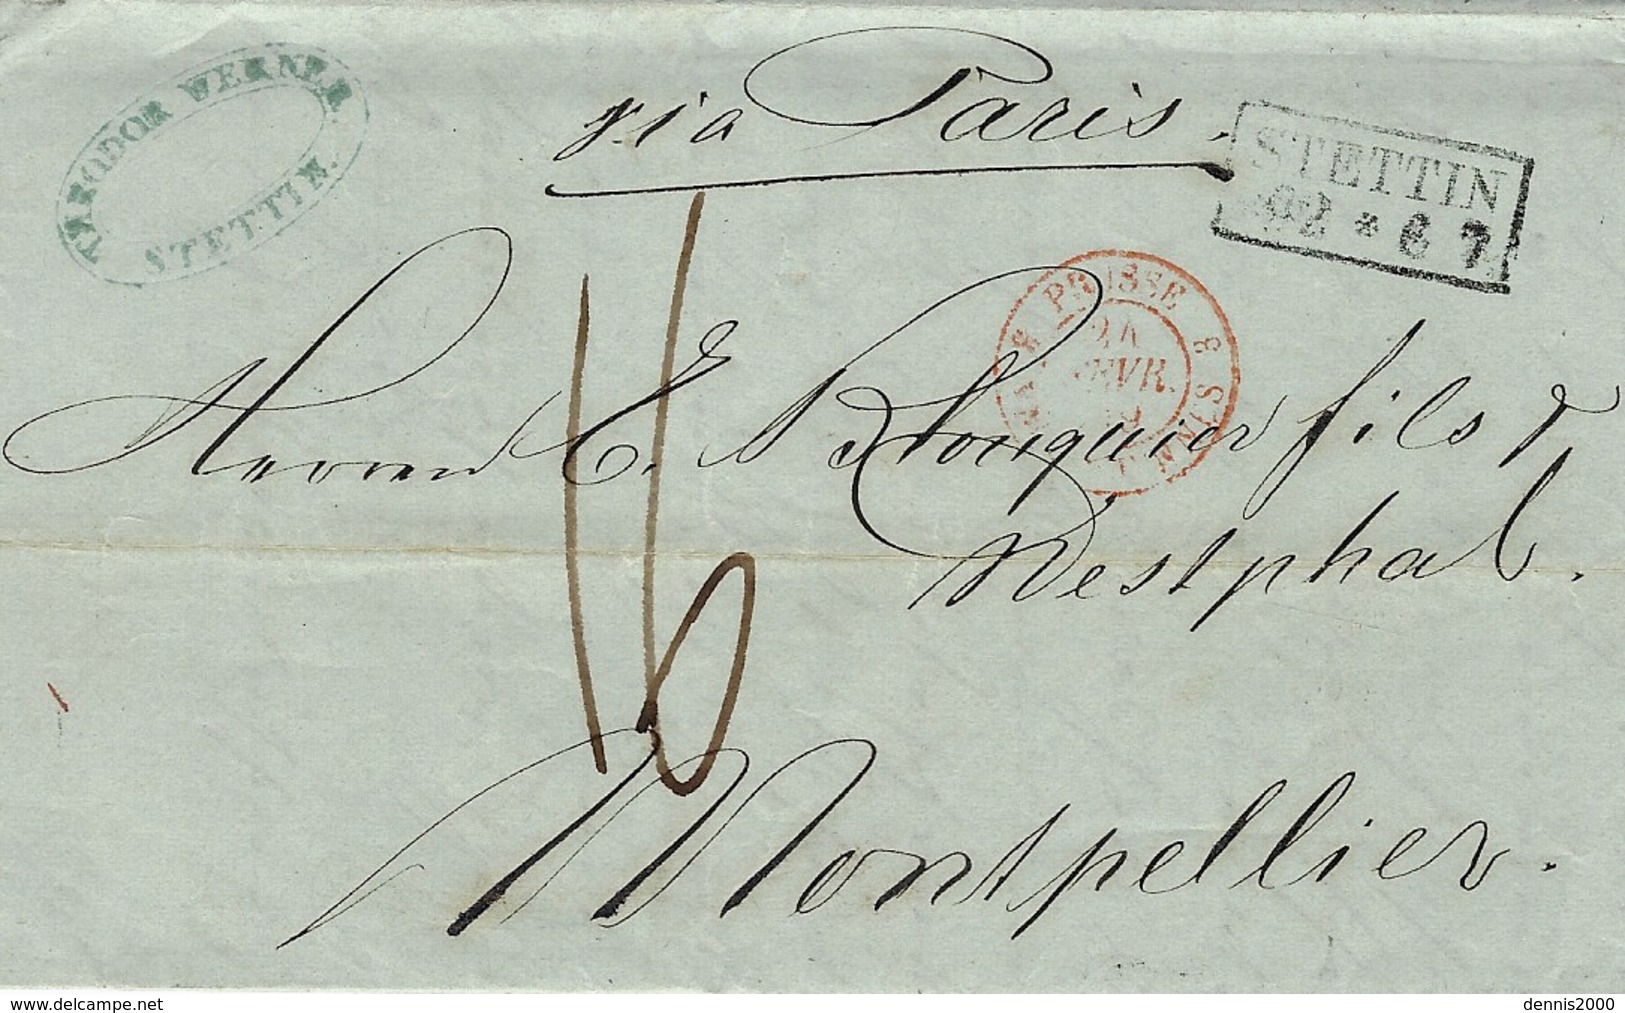 THEODOR WERNER.
STETTIN.
via Paris.
STETTIN
PRUSSE
8 8
24
FEVR.
Herren E. Bronquier fils &
Westphal.
16
Montpellier.
www.delcampe.net
dennis2000